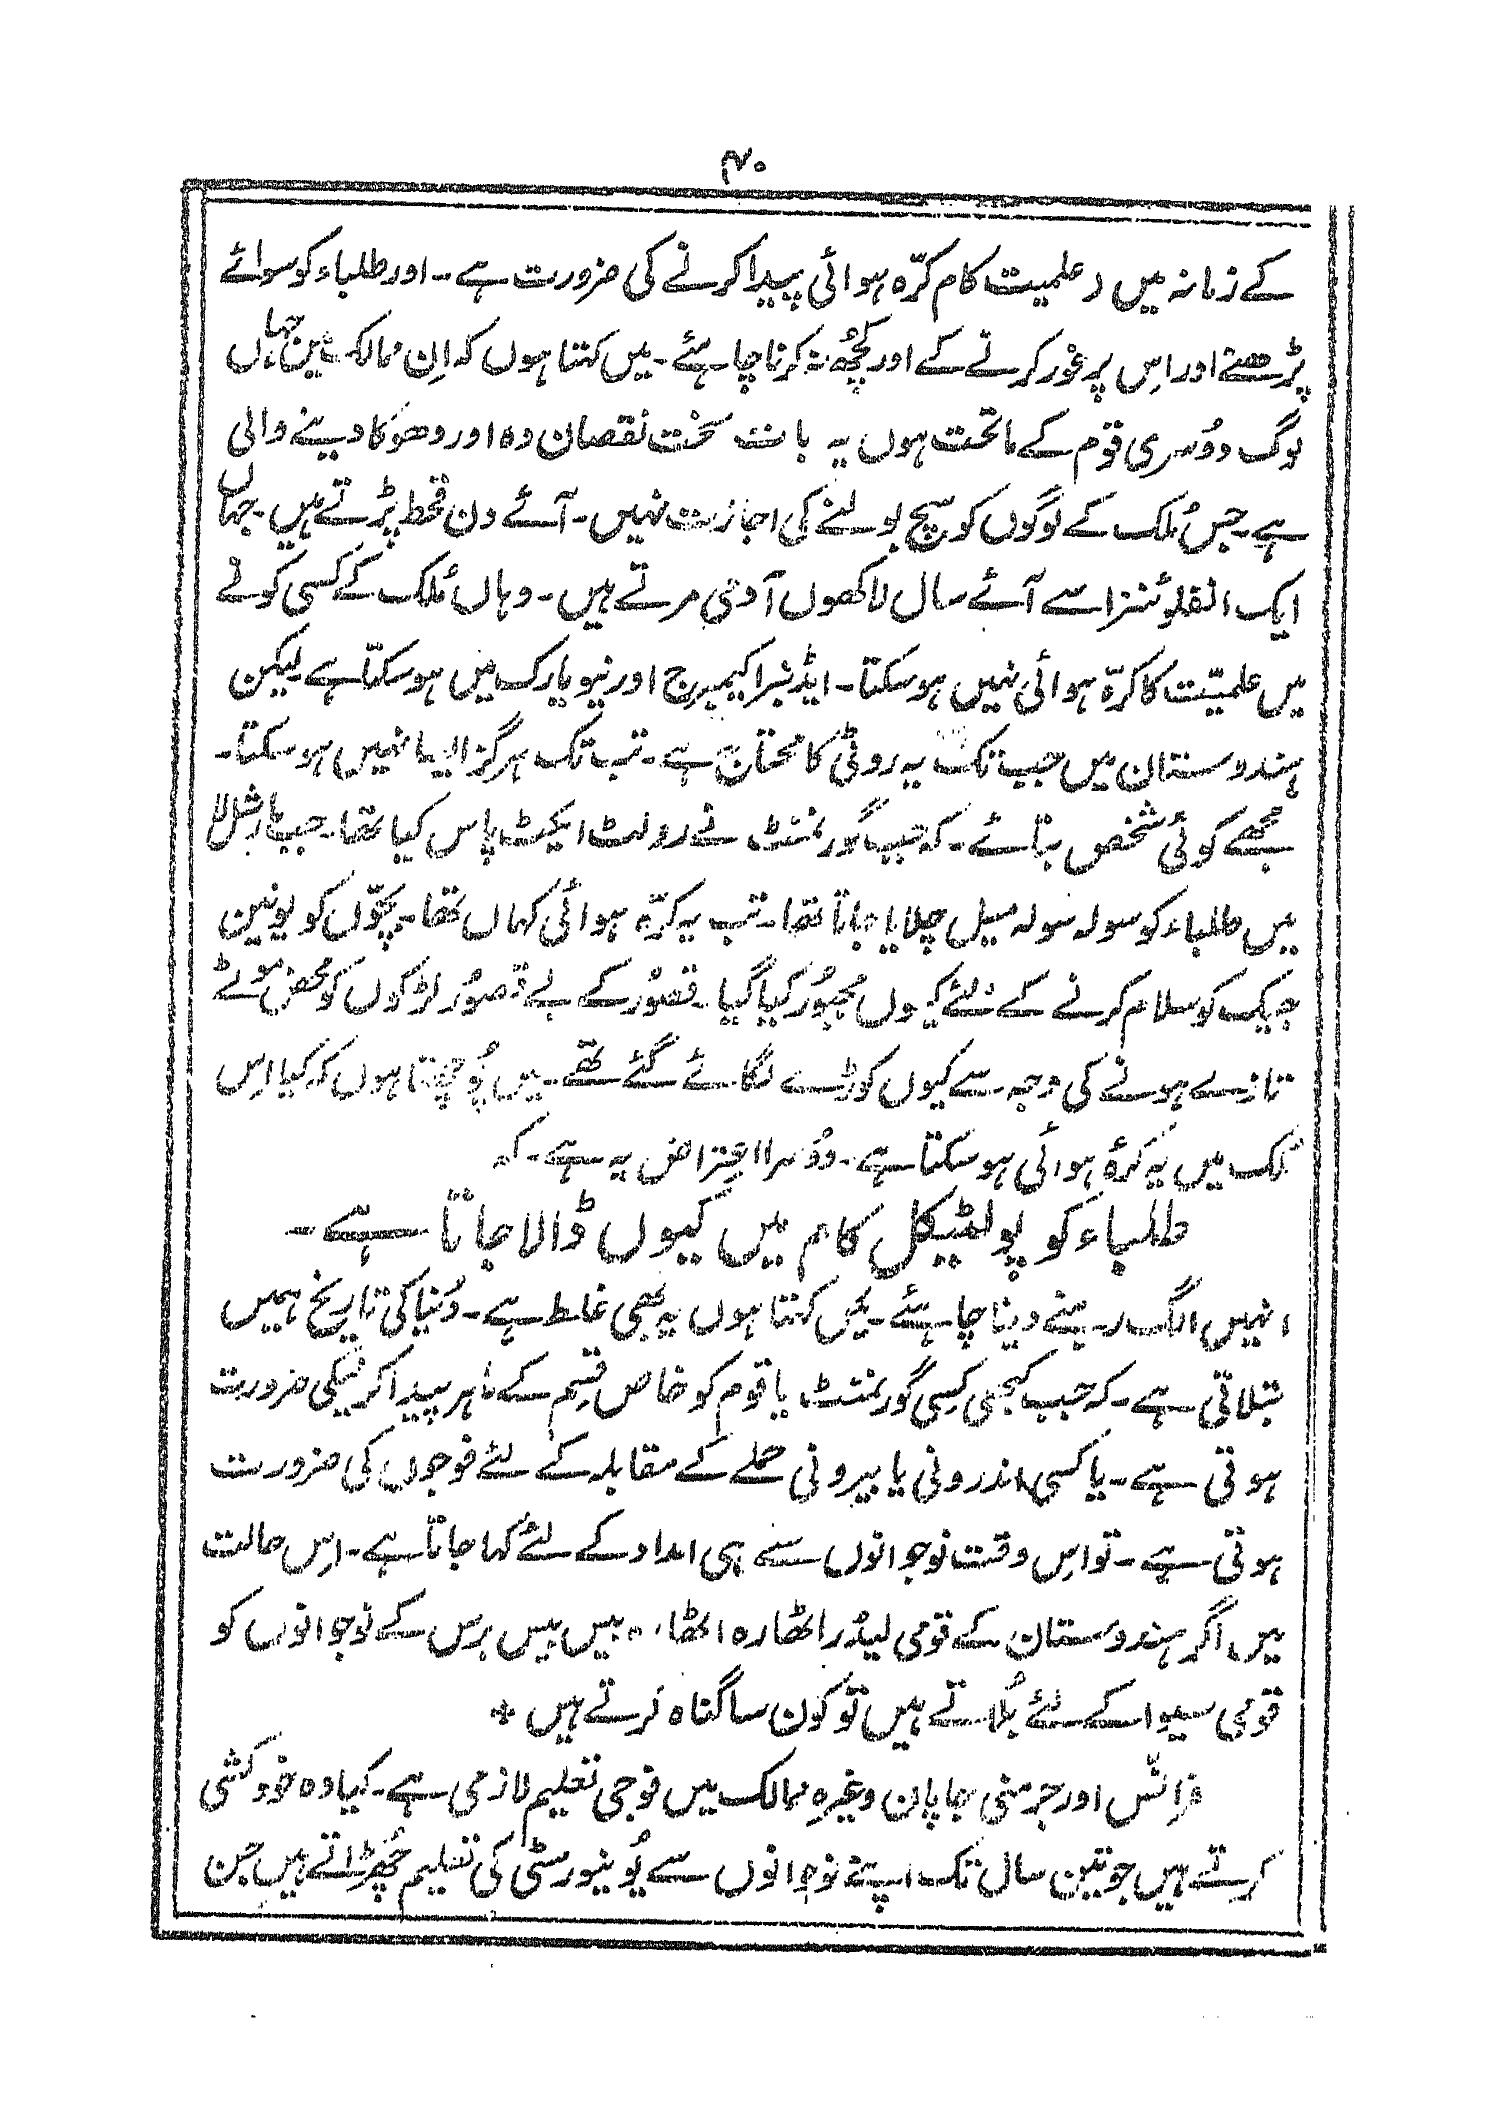 ۴۰
کے زمانہ میں رعلمیت کام کرّہ ہوائی پیدا کرنے کی ضرورت ہے۔ اور طلباء کو سوائے
پڑھنے اور اس پر غور کرنے کے اور کچُھ نہ کرنا چاہئے۔ میں کہتا ہوں کہ اِن ممالک میں جہاں
لوگ دوُسری قوم کے ماتحت ہوں یہ بات سخت نقصان دہ اور دھوکا دینے والی
ہے۔ جس مُلک کے لوگوں کو سچ بولنے کی اجازت نہیں۔ آئے دن قحط پڑتے ہیں۔ جہاں
ایک انفلوئنزا سے آئے سال لاکھوں آدمی مرتے ہیں۔ وہاں مُلک کے کسی کونے
میں علمیّت کا کرّہ ہوائی نہیں ہو سکتا۔ ایڈنبرا کیمبرج اور نیویارک میں ہو سکتا ہے لیکن
ہندوستان میں جب تک یہ روٹی کا محتاج ہے۔ تب تک ہرگز ایسا نہیں ہو سکتا۔
مجھے کوئی شخص بتائے۔ کہ جب گورنمنٹ نے رولٹ ایکٹ پاس کیا تھا۔ جب مارشل لا
میں طلباء کو سولہ سولہ میل چلایا جاتا تھا۔ تب یہ کرّہ ہوائی کہاں تھا۔ بچّوں کو یونین
جیک کو سلام کرنے کے لئے کیوں مجبُور کیا گیا۔ قصُور کے بے قصوُر لڑکوں کو محض موٹے
تازے ہونے کی وجہ سے کیوں کوڑے لگائے گئے تھے۔ میں پُوچھتا ہوں کہ کیا اِس
مُلک میں یہ کرّہ ہوائی ہو سکتا ہے۔ دوُسرا اعتراض یہ ہے۔ کہ
طلباء کو پولٹیکل کام میں کیوں ڈالا جاتا ہے۔
انہیں الگ رہنے دینا چاہئے۔ میَں کہتا ہوں یہ بھی غلط ہے۔ دُنیا کی تاریخ ہمیں
بتلاتی ہے۔ کہ جب کبھی کِسی گورنمنٹ یا قوم کو خاص قِسم کے ماہر پیدا کرنیکی ضرورت
ہوتی ہے۔ یا کسی اندرونی یا بیرونی حملے کے مقابلہ کے لئے فوجوں کی ضرورت
ہوتی ہے۔ تو اس وقت نوجوانوں سے ہی امداد کے لئے کہا جاتا ہے۔ اِس حالت
میں اگر ہندوستان کے قومی لیڈر اٹھارہ اٹھارہ بیس بیس برس کے نوجوانوں کو
قومی سیوا کے لئے بُلاتے ہیں تو کون سا گناہ کرتے ہیں +
فرانس اور جرمنی جاپان وغیرہ ممالک میں فوجی تعلیم لازمی ہے۔ کیا وہ خودکشی
کرتے ہیں جو تین سال تک اپنے نوجوانوں سے یُونیورسٹی کی تعلیم چھُڑاتے ہیں جن